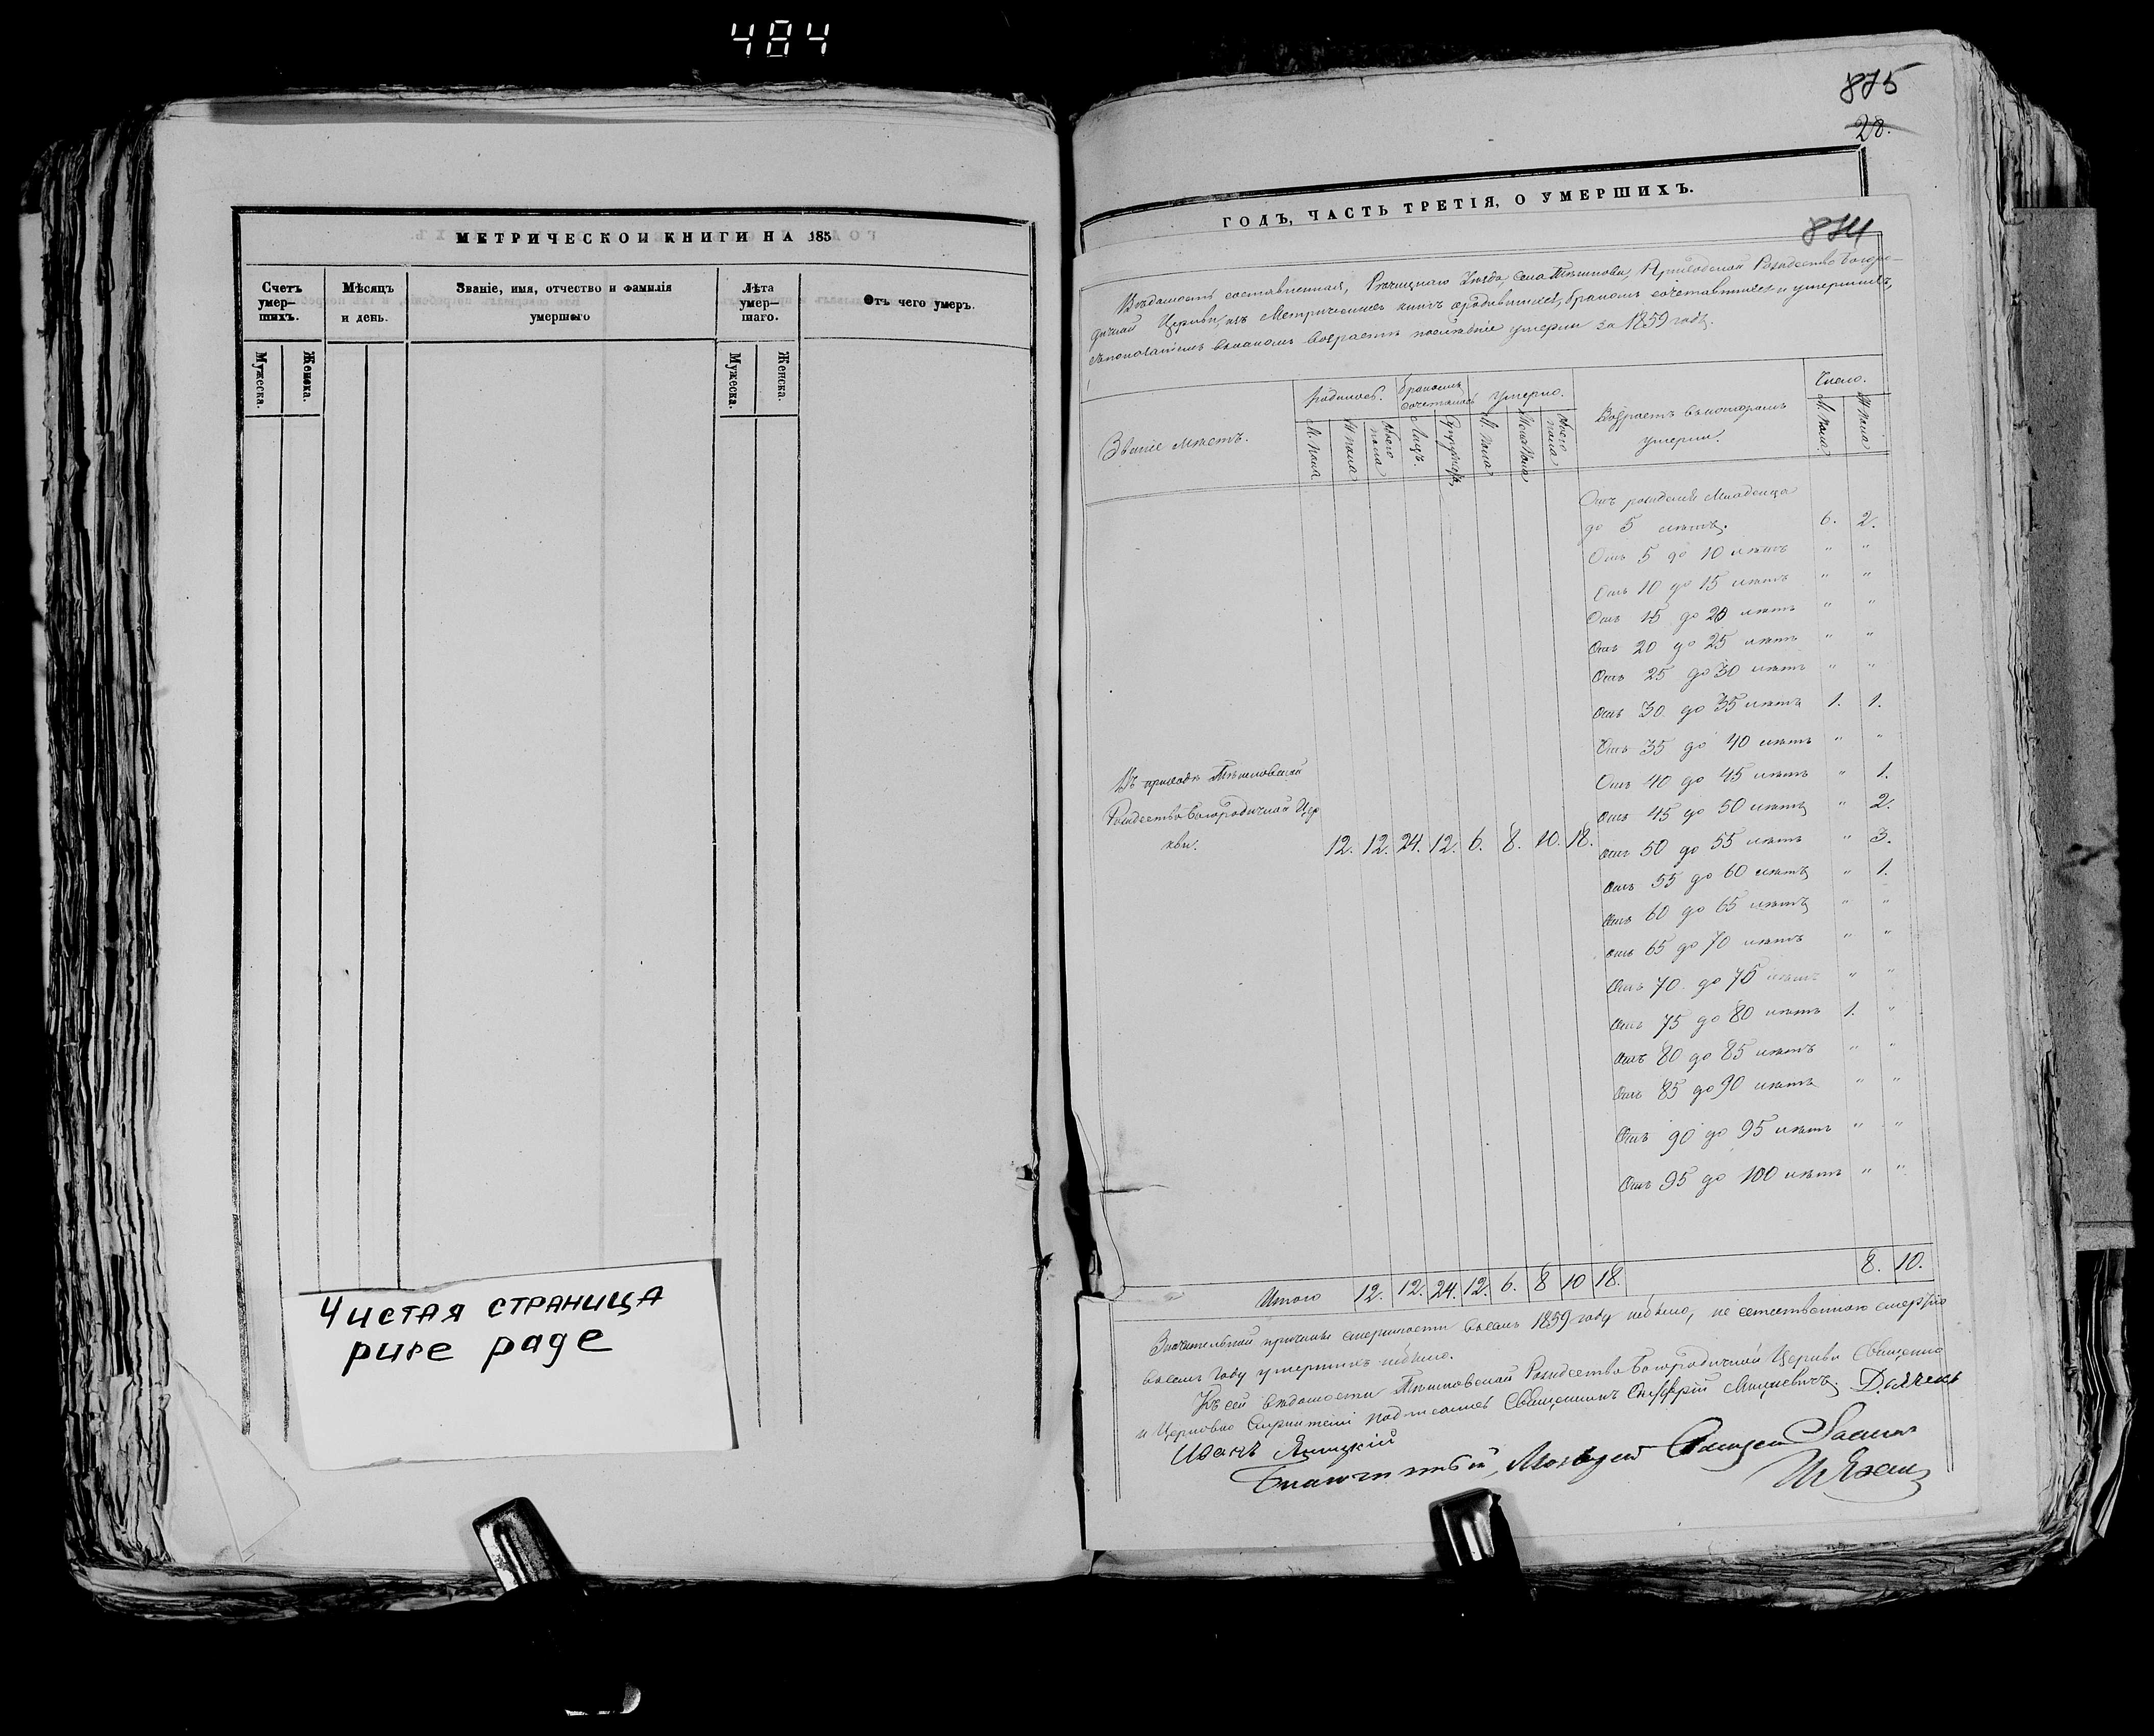 484
МЕТРИЧЕСКОЙ КНИГИ НА 185
Счетъ умер-шихъ.
Мѣсяцъ и день.
Званіе, имя, отчество и фамилія умершаго
Лѣта умер-шаго.
Отъ чего умеръ.
Мужеска.
Женска.
Мужеска.
Женска.
Чистая страница
pure page
875
28.
ГОДЪ, ЧАСТЬ ТРЕТІЯ, О УМЕРШИХЪ.
874
Вѣдомость составленная, Рѣчицкаго Уѣзда, села Тѣшкова, Приходской Рождество Богоро-
дичной Церкви, изъ Метрическихъ книгъ о родившихся, бракомъ сочетавшихся и умершихъ,
съ показаніемъ въ какомъ возрастѣ послѣдніе умерли за 1859 годъ.
Званіе мѣстъ.
Родилось.
Бракомъ сочеталось
Умерло.
Возрастъ въ которомъ умерли.
Число.
М. пола
Ж пола
Обоего пола
Лицъ.
Супружествъ
М. пола
Женс. пола
Обоего пола
М. пола
Ж пола
Отъ рожденія Младенца
до 5 лѣтъ. 6. 2.
Отъ 5 до 10 лѣтъ " "
Отъ 10 до 15 лѣтъ " "
Отъ 15 до 20 лѣтъ " "
Отъ 20 до 25 лѣтъ " "
Отъ 25 до 30 лѣтъ " "
Отъ 30 до 35 лѣтъ 1. 1.
Отъ 35 до 40 лѣтъ " "
Отъ 40 до 45 лѣтъ " 1.
Отъ 45 до 50 лѣтъ " 2.
Отъ 50 до 55 лѣтъ " 3.
Отъ 55 до 60 лѣтъ " 1.
Отъ 60 до 65 лѣтъ " "
Отъ 65 до 70 лѣтъ " "
Отъ 70 до 75 лѣтъ " "
Отъ 75 до 80 лѣтъ 1. "
Отъ 80 до 85 лѣтъ " "
Отъ 85 до 90 лѣтъ " "
Отъ 90 до 95 лѣтъ " "
Отъ 95 до 100 лѣтъ " "
Въ приходѣ Тѣшковской
Рождество Богородичной Цер
кви. 12. 12. 24. 12. 6. 8. 10. 18.
Итого 12. 12. 24. 12. 6. 8 10 18. 8. 10.
Значительной причины смертности въ семъ 1859 году небыло, не естественною смертію
въ семъ году умершихъ небыло.
Къ сей вѣдомости Тѣшковской Рождество Богородичной Церкви Священно
и Церковно служители подписались Священникъ Онуфрій Дьячекъ
Иванъ